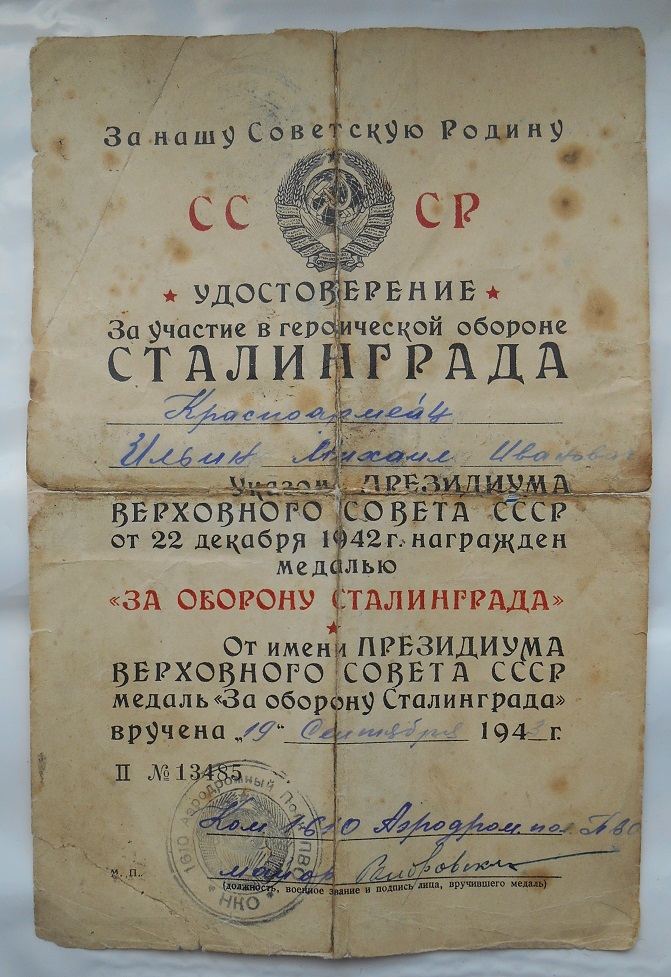 За нашу Советскую Родину
СССР
УДОСТОВЕРЕНИЕ
За участие в героической обороне
СТАЛИНГРАДА
Красноармеец
Ильин Михаил Иванович
Указом ПРЕЗИДИУМА
ВЕРХОВНОГО СОВЕТА СССР
от 22 декабря 1942 г. награжден
медалью
«ЗА ОБОРОНУ СТАЛИНГРАДА»
От имени ПРЕЗИДИУМА
ВЕРХОВНОГО СОВЕТА СССР
медаль «За оборону Сталинграда»
вручена „19“ Сентября 1943 г.
II № 13485
1610 Аэродромный ПВО НКО
Ком 1610 Аэродром. ПВО
М. П.
майор
(должность, военное звание и подпись лица, вручившего медаль)